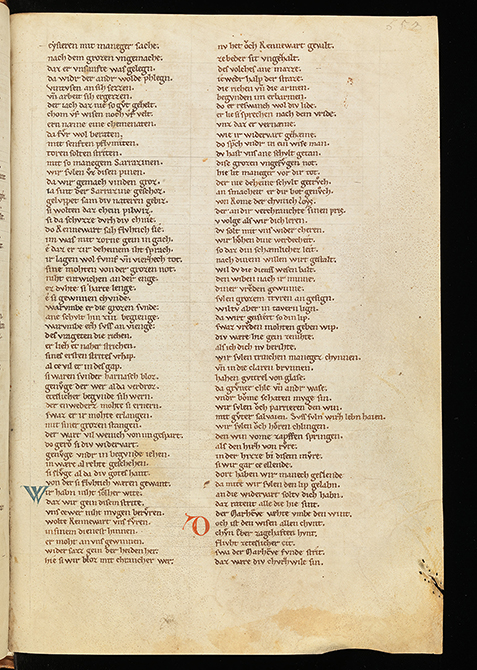 652
cỷſieren mit maneger ſache.
nach dem grozen vngemache.
daz er vnſanfte was gelegn.
da widr der andr wolde phlegn.
vintvſen an ſih ſezzen.
vn̄ arbeit ſih ergezzen.
der iach daz niē ſo gvt gehelt.
ern nanne eine
da fvr wol beraten.
mit ſenften pflvmiten.
toren ſolten ſtriten.
mit ſo manegem Sarrazinen.
wir ſvlen ỽz diſen pinen.
da wir gemach vinden groz.
ia ſint der Sarrazine geſchoz.
gelvpet ſam div natern gebiz.
do Rennewart ſah flvhtich ſie.
im was mit zorne gein in gach.
e daz er zir deheinem iht ſprach.
ir lagen wol fvnf vn̄ vierzech tot.
ſine mohten von der grozen not.
niht entwichen an der enge.
er dvhte ſi harte lenge.
e ſi gewinnen chvnde.
warvmbe er die grozen ſvnde.
ane ſchvlt hin zin begienge.
warvmbe erh ſvſs an vienge.
des vrageten die richen.
er lieh et naher ſtrichen.
ſines erſten ſtrites vrhap.
al ze vil er in des gap.
ſi waren ſvnder harnaſch bloz.
genvge der wer alda verdroz.
etzſlicher begvnde ſih wern.
der entwederz mohte ſi ernern.
ſwaz er ir mohte erlangen.
mit ſiner grozen ſtangen.
der wart vil wenich von im geſpart.
do gerte ſi div widervart.
genvge vndr in begvnde iehen.
in wære al rehte geſchehen.
ſi flvge al da div gotes hant.
von der ſi flvhtich waren gewant.
Wir habn niht ſolher wite.
daz wir gein diſem ſtrite.
vns ze wer niht mvgen bervren.
wolte Rennewart vns fvren.
in ſinem dienſt hinnen.
er moht an vns gewinnen.
wider ſazz gein der heiden her.
hie ſi wir bloz mit chrancher wer.
nv het oͮch Rennewart gezalt.
ze beder ſit vngehalt.
des volches ane mazze.
ietwedr halp der ſtraze.
die richen vn̄ die armen.
begvnden im erbarmen.
do er rezwanch wol div lide.
er lie ſi ſprechen nach dem vride.
vnz daz er vernanne.
wir ir widervart gezæme.
do ſpͦch vndr in ein wiſe man.
dv haſt vns ane ſchvlt getan.
diſe grozen vngefvgen not.
hie lit maneger vor dir tot.
der nie deheine ſchvlt getrvch.
an ſmacheit er dir bot genvch.
von Rome der chvnich Loys.
der an dir verchrenchte ſinen pris.
v volge als wir dich leren.
dv ſolt mit vns wider cheren.
wir hohen dine werdecheit.
ſo daz din ſchamlichez leit.
nach dinem willen wirt geſtalt.
wil dv die dienſt weſen balt.
den wiben nach ir minne.
diner vrevden gewinne.
ſvlen grozem trvren an geſign.
wiltv aber in tavern lign.
da wirt gefivret ſo din lip.
ſwaz vrevden mohten geben wip.
div wære hie gein zenihte.
als ich dich nv berihte.
wir ſvlen trinchen maneger chvnnen.
vn̄ in die claren brvnnen.
habn gvttrel von glaſe.
da grvner chle vn̄ andr waſe.
vndr bovme ſchaten mvge ſin.
wir ſvlen oͮch parrieren den win.
mit gvter ſalvaien. ſvſs ſvln wirh lebn haien.
wir ſvlen oͮch horen chlingen.
den win vome zapffen ſpringen.
als den hirz von rvre.
in der hitze bi diſem mvre.
ſi wir gar ze ellende.
dort haben wir manech geſlende
da mite wir ſvlen den lip gelabn.
an die widervart ſoltv dich habn.
daz ratent alle die hie ſint.
der Marhcve vehte vmbe den wint.
Doch iſt den wiſen allen chvnt.
chvn ſlber zagehaften hvnt.
flivhe zeteſlicher zit.
ſwa der Marhcve fvnde ſtrit.
daz wære div chvrzwile ſin.